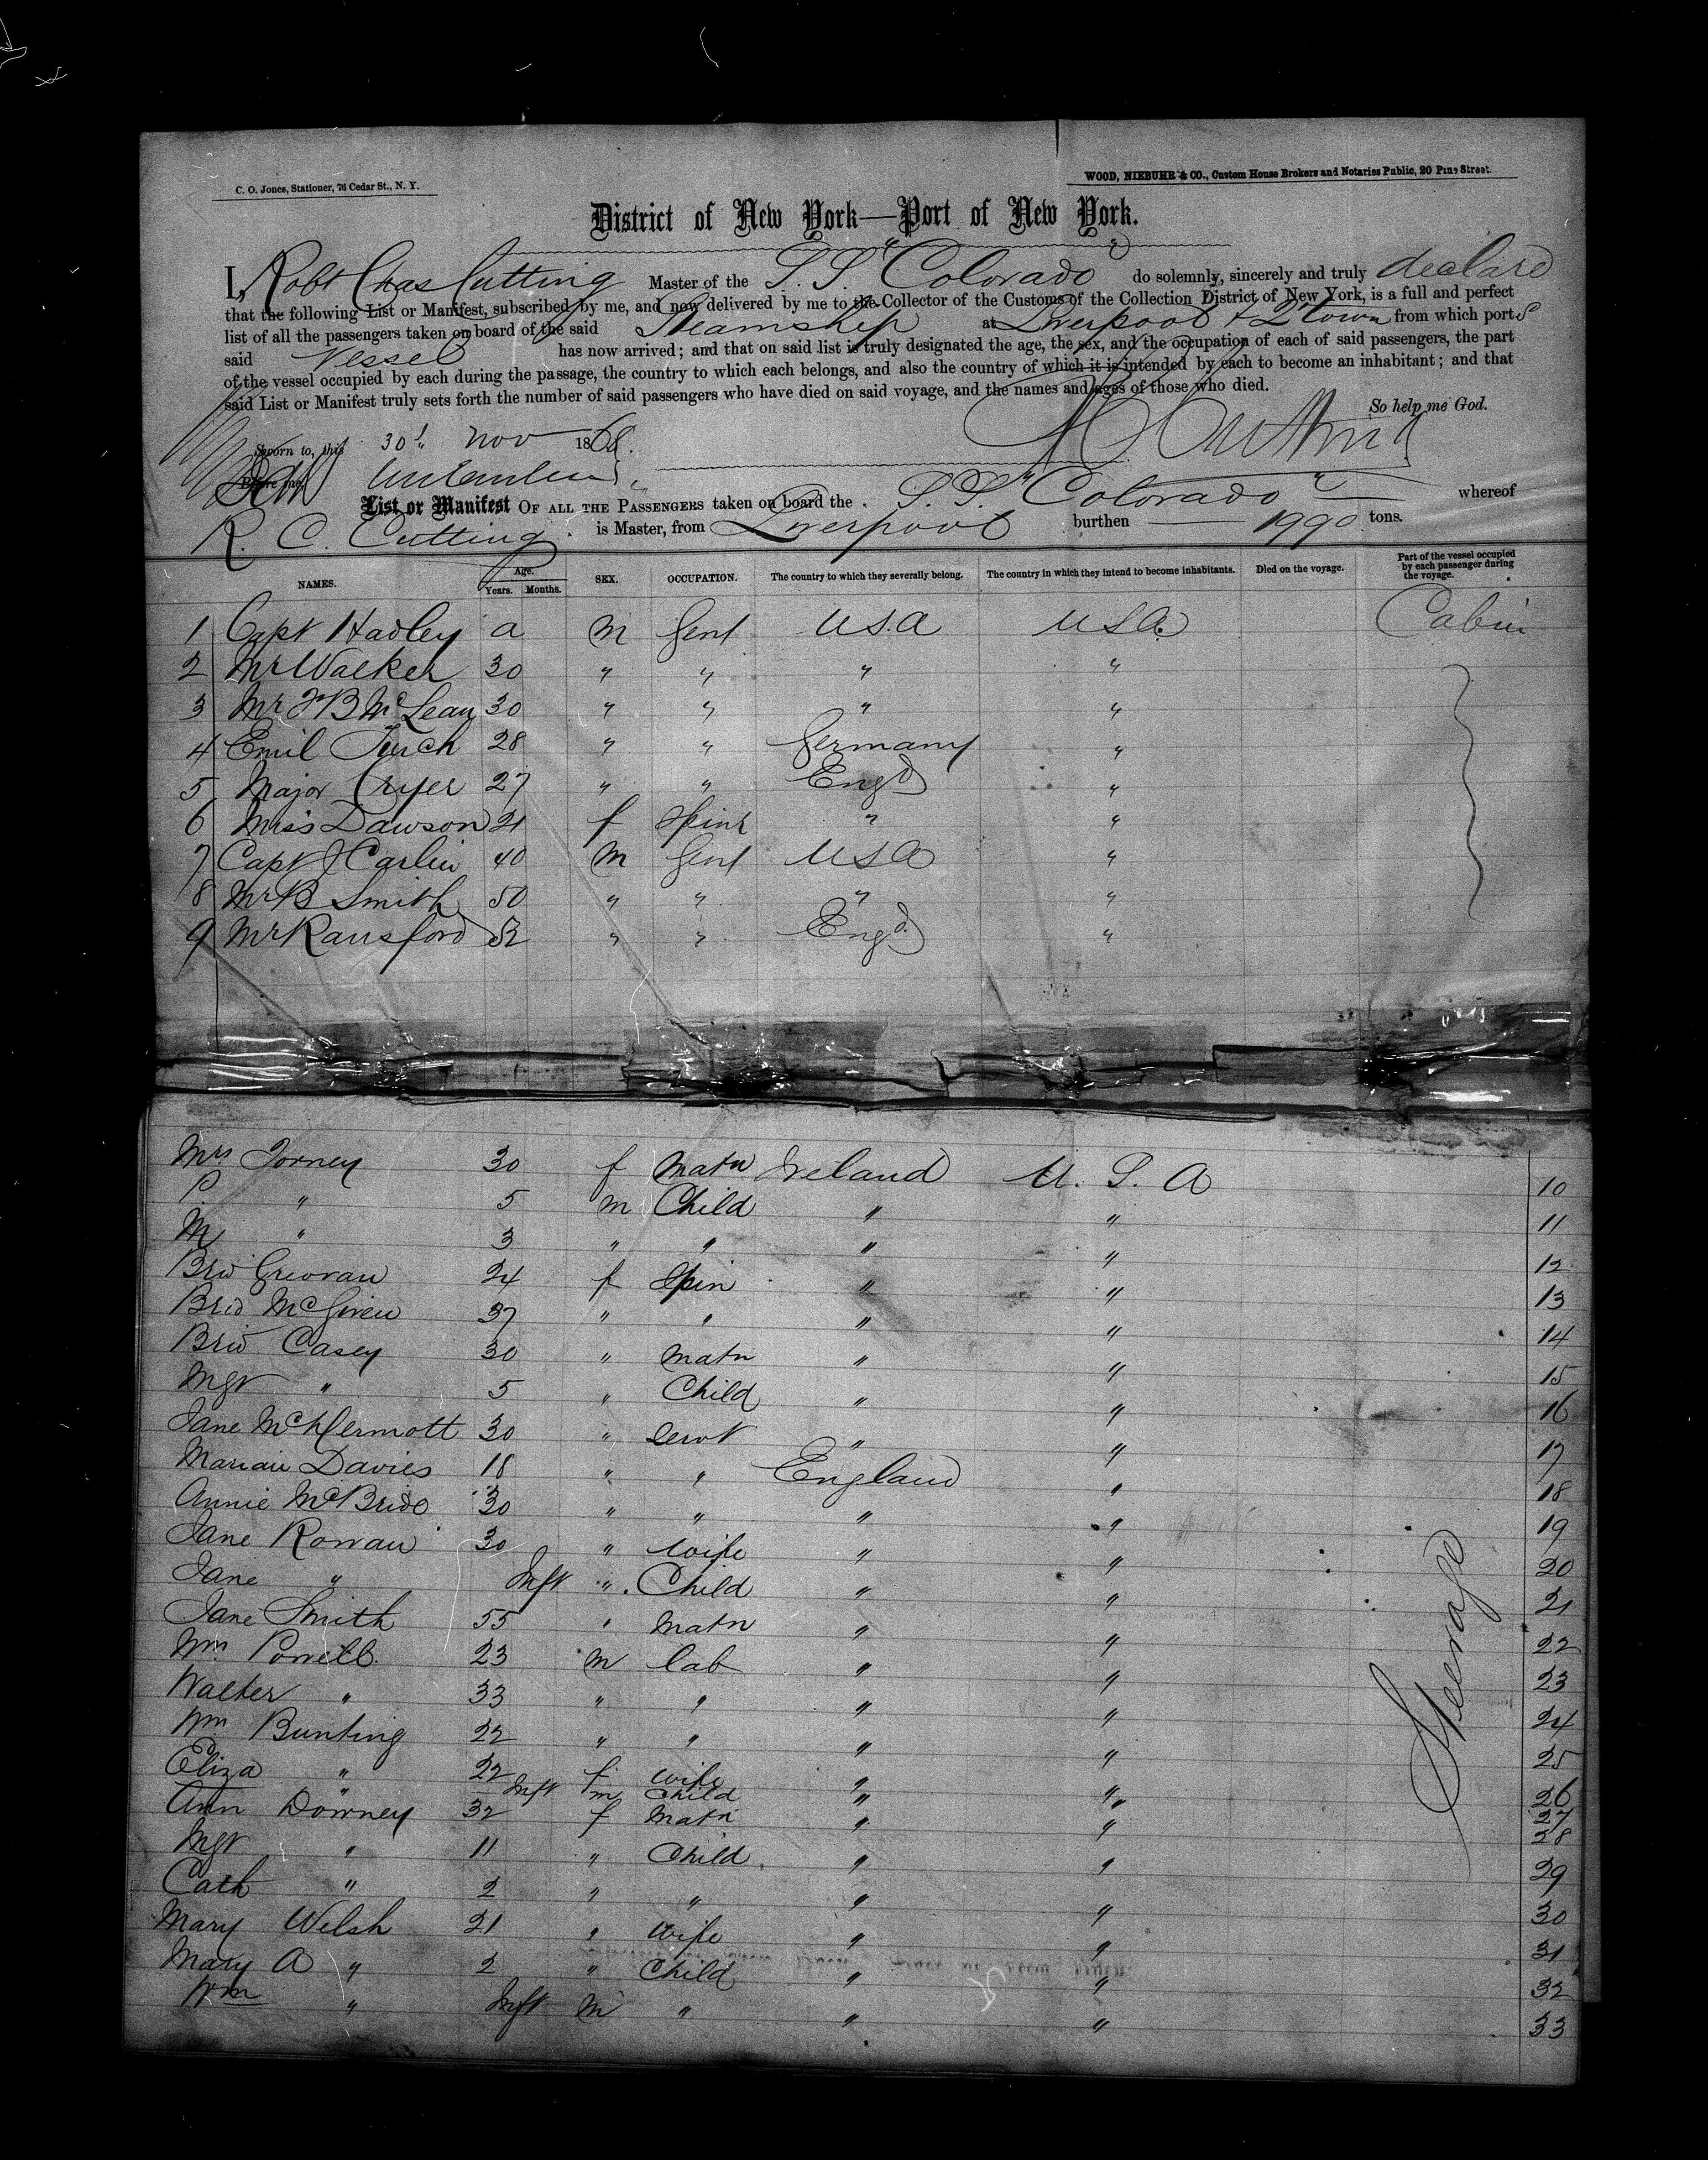 C. O. Jones, Stationer, 76 Cedar St., N. Y.
WOOD, NIEBUHR & CO., Custom House Brokers and Notaries Public, 20 Pine Street.
District of New York—Port of New York.
I, Robt Chas Cutting Master of the S.S. "Colorado" do solemnly, sincerely and truly declare
that the following List or Manifest, subscribed by me, and now delivered by me to the Collector of the Customs of the Collection District of New York, is a full and perfect
list of all the passengers taken on board of the said Steamship at Liverpool & Q'town from which ports
said Vessel has now arrived; and that on said list is truly designated the age, the sex, and the occupation of each of said passengers, the part
of the vessel occupied by each during the passage, the country to which each belongs, and also the country of which it is intended by each to become an inhabitant; and that
said List or Manifest truly sets forth the number of said passengers who have died on said voyage, and the names and ages of those who died.
So help me God.
Sworn to, this 30th Nov 1868.
Before me,
List or Manifest OF ALL THE PASSENGERS taken on board the S.S. "Colorado" whereof
R. C. Cutting is Master, from Liverpool burthen 1990 tons.
NAMES. Age. Years. Months. SEX. OCCUPATION. The country to which they severally belong. The country in which they intend to become inhabitants. Died on the voyage. Part of the vessel occupied by each passenger during the voyage.
1 Capt Hadley a m Gent USA USA Cabin
2 Mr Walker 30 " " " "
3 Mr F B McLean 30 " " " "
4 Emil 28 " " Germany "
5 Major Cryer 27 " " Engd "
6 Miss Dawson 21 f Spinr " "
7 Capt J Carlin 40 m Gent USA "
8 Mr B Smith 50 " " " "
9 Mr Ransford 52 " " Engd "
Mrs Torney 30 f Matn Ireland U. S. A 10
P. " 5 m Child " " 11
M " 3 " " " " 12
Brid 24 f Spin " " 13
Brid McGiven 37 " " " " 14
Brid Casey 30 " Matn " " 15
Mgt " 5 " Child " " 16
Jane McDermott 30 " Servt " " 17
Marian Davies 18 " " England " 18
Annie McBride 30 " " " " 19
Jane Rowan 30 " Wife " " 20
Jane " Inft " Child " " 21
Jane Smith 55 " Matn " " 22
Wm Powell 23 m Lab " " 23
Walter " 33 " " " " 24
Wm Bunting 22 " " " " 25
Eliza " 22 f Wife " " 26
" Inft m Child " " 27
Ann Downey 32 f Matn " " 28
Mgt " 11 " Child " " 29
Cath " 2 " " " " 30
Mary Welsh 21 " Wife " " 31
Mary A " 2 " Child " " 32
Wm " Inft m " " " 33
Steerage